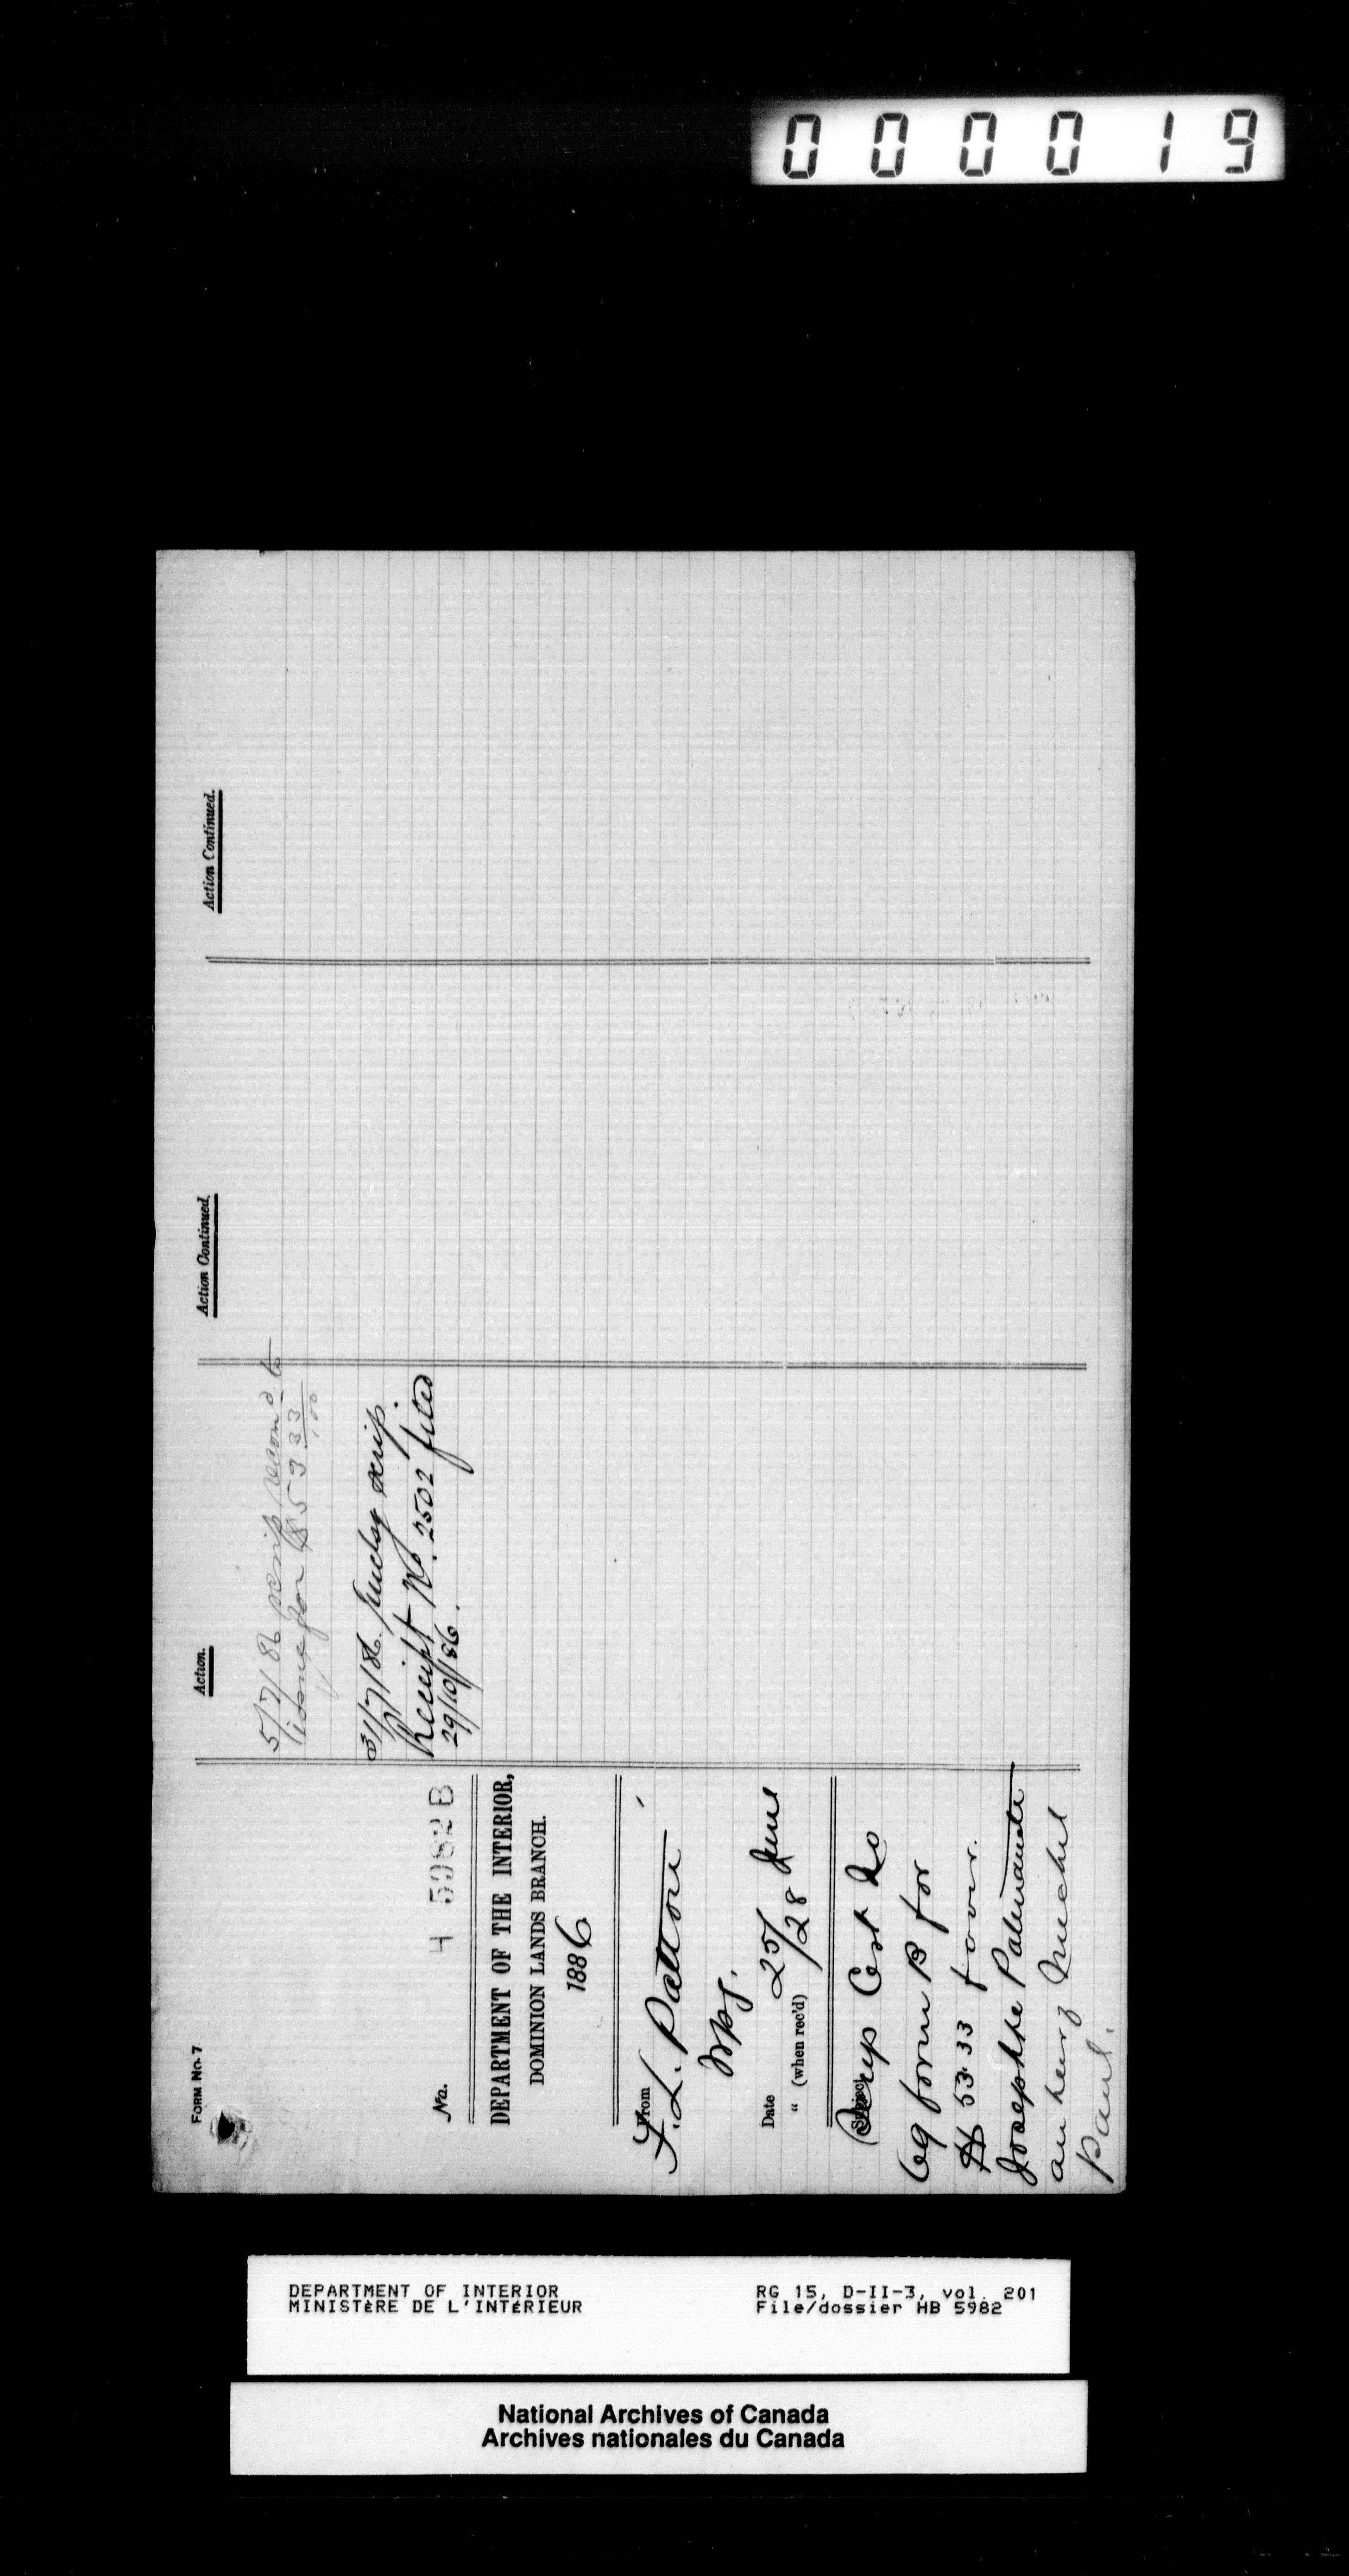 000019
FORM No. 7
No. H 5982 B
DEPARTMENT OF THE INTERIOR,
DOMINION LANDS BRANCH.
1886
From
F. L. Patton
Wpg.
Date 25/ June
" (when rec'd) /28
Subject
Scrip Cert No
69 form B for
$53.33 favor.
Josephte
an heir of Michel
Paul.
Action.
5/7/86 scrip recomd to
issue for $53 33/100
31/7/86 scrip.
Receipt No. 2502 filed
29/10/86.
Action Continued.
Action Continued.
DEPARTMENT OF INTERIOR
MINISTÈRE DE L'INTÉRIEUR
RG 15, D-II-3, vol. 201
File/dossier HB 5982
National Archives of Canada
Archives nationales du Canada